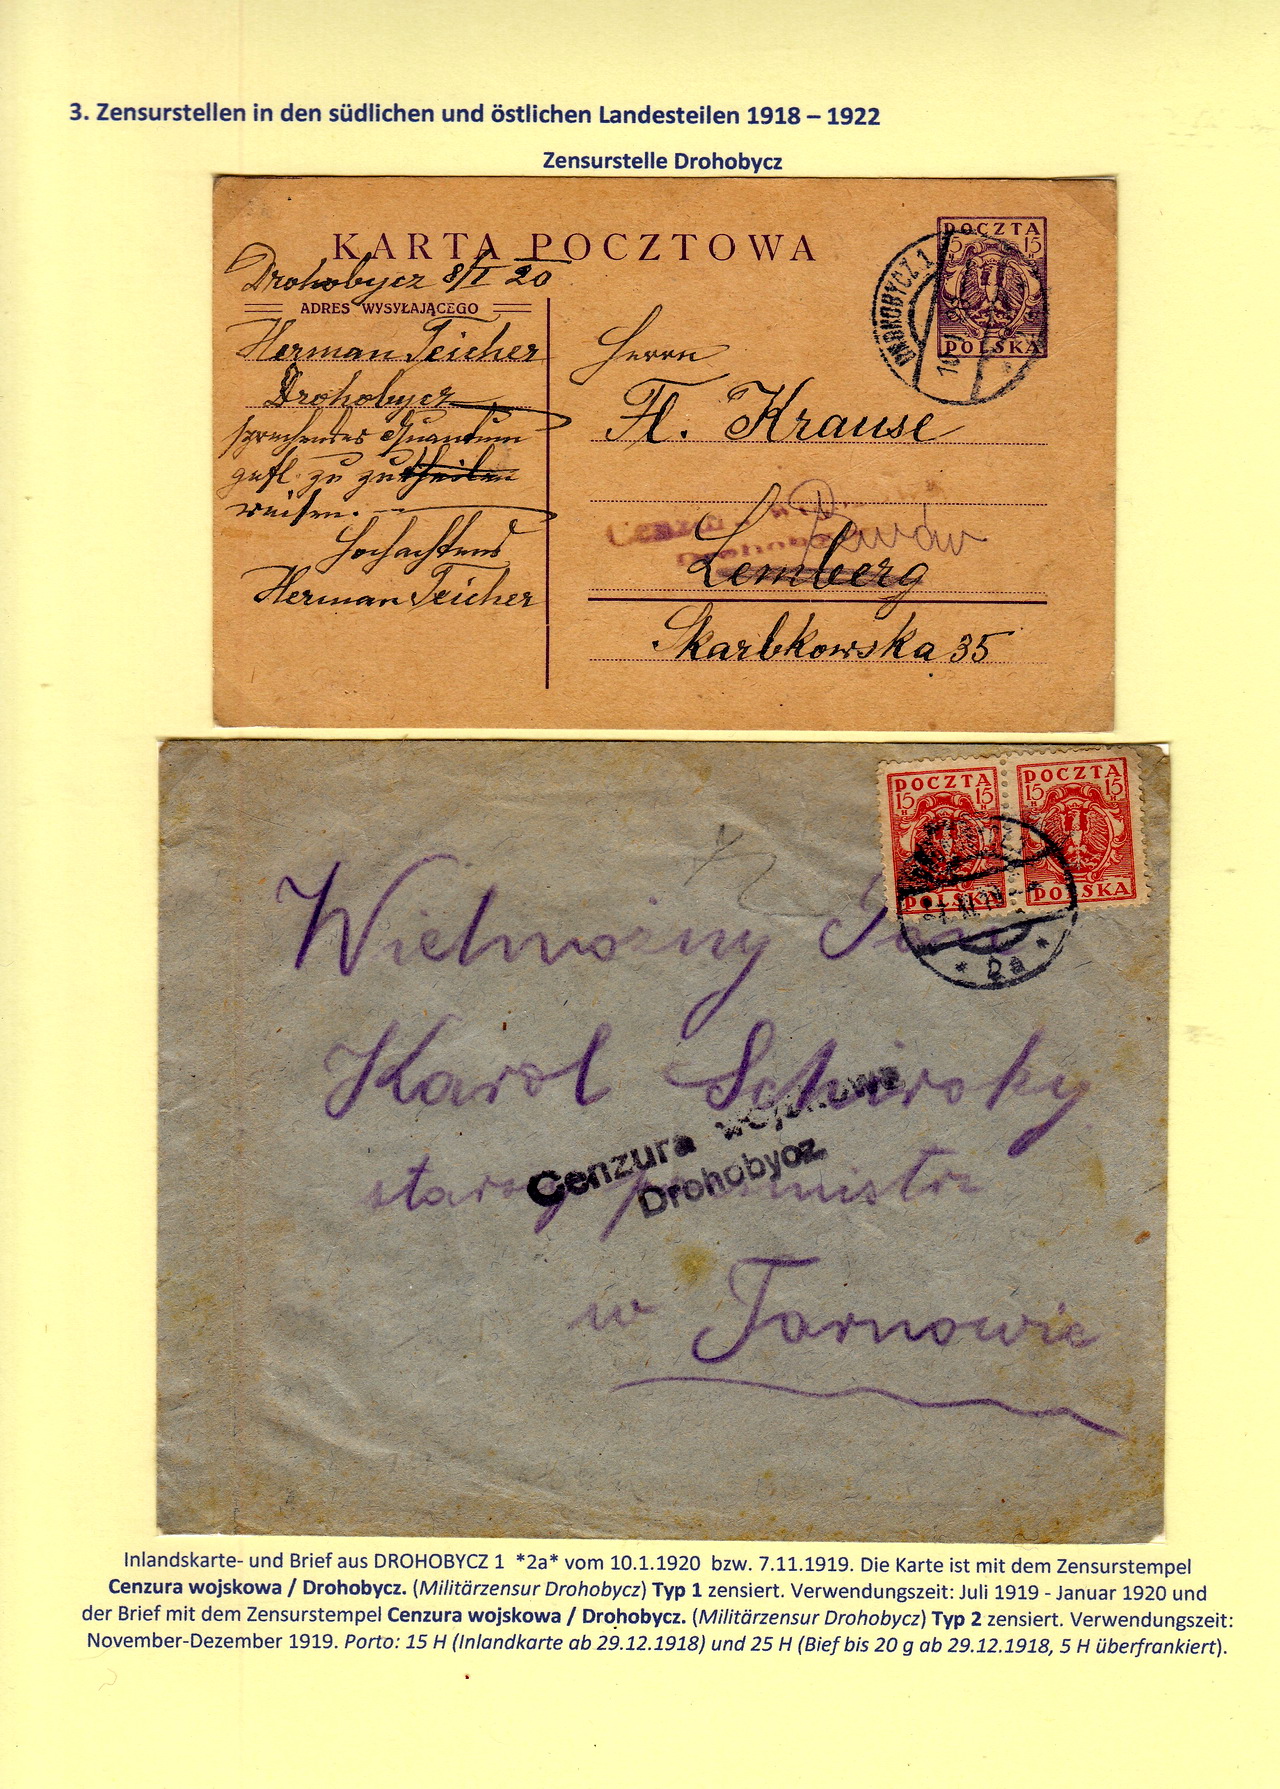 3. Zensurstellen in den südlichen und östlichen Landesteilen 1918 – 1922
Zensurstelle Drohobycz
KARTA POCZTOWA
Drohobycz 8/I 20
ADRES WYSYŁAJĄCEGO
Herman Teicher
Drohobycz
sprechendes Quantum
gefl. zu
Hochachtend
Herman Teicher
POCZTA
15 15
POLSKA
DROHOBYCZ 1
10
Herrn
Fl. Krause
Lwów
Drohobycz
Lemberg
Skarbkowska 35
POCZTA
15 15
H H
POLSKA
POCZTA
15 15
H H
POLSKA
* 2a *
Wielmożny Pan
Karol
Cenzura wojskowa
Drohobycz.
w Tarnowie
Inlandskarte- und Brief aus DROHOBYCZ 1 *2a* vom 10.1.1920 bzw. 7.11.1919. Die Karte ist mit dem Zensurstempel
Cenzura wojskowa / Drohobycz. (Militärzensur Drohobycz) Typ 1 zensiert. Verwendungszeit: Juli 1919 - Januar 1920 und
der Brief mit dem Zensurstempel Cenzura wojskowa / Drohobycz. (Militärzensur Drohobycz) Typ 2 zensiert. Verwendungszeit:
November-Dezember 1919. Porto: 15 H (Inlandkarte ab 29.12.1918) und 25 H (Bief bis 20 g ab 29.12.1918, 5 H überfrankiert).